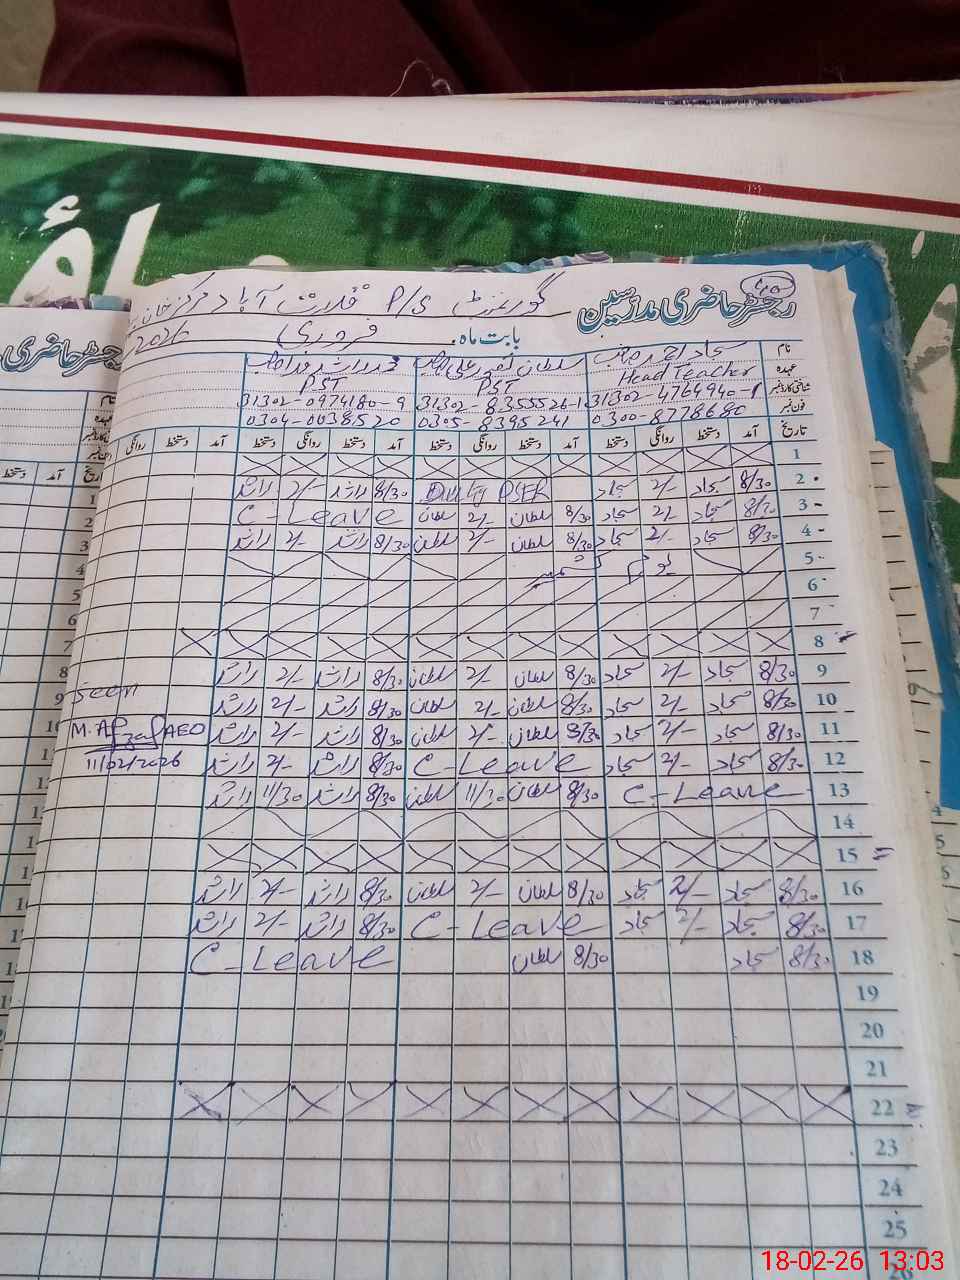 رجسٹر حاضری مدرسین
گورنمنٹ P/S قدرت آباد مرکز خان
بابت ماہ فروری 2026
نام سجاد احمد صاحب سلطان محمد راشد
عہدہ Head Teacher PST PST
شناختی کارڈ نمبر 31302-4764940-1 31302-8355526-1 31302-0974180-9
فون نمبر 0300-8778680 0305-8395241 0304-0038520
تاریخ آمد دستخط روانگی دستخط آمد دستخط روانگی دستخط آمد دستخط روانگی دستخط آمد دستخط روانگی
1
2 8/30 سجاد 2/- سجاد Duty PSER 8/30 راشد 2/- راشد
3 8/30 سجاد 2/- سجاد 8/30 سلطان 2/- سلطان C-Leave
4 8/30 سجاد 2/- سجاد 8/30 سلطان 2/- سلطان 8/30 راشد 2/- راشد
5 یوم کشمیر
6
7
8
9 8/30 سجاد 2/- سجاد 8/30 سلطان 2/- سلطان 8/30 راشد 2/- راشد
Seen
10 8/30 سجاد 2/- سجاد 8/30 سلطان 2/- سلطان 8/30 راشد 2/- راشد
11 8/30 سجاد 2/- سجاد 8/30 سلطان 2/- سلطان 8/30 راشد 2/- راشد
M. Afzal AEO
11/02/2026
12 8/30 سجاد 2/- سجاد C-Leave 8/30 راشد 2/- راشد
13 C-Leave 8/30 سلطان 11/30 سلطان 8/30 راشد 11/30 راشد
14
15
16 8/30 سجاد 2/- سجاد 8/30 سلطان 2/- سلطان 8/30 راشد 2/- راشد
17 8/30 سجاد 2/- سجاد C-Leave 8/30 راشد 2/- راشد
18 8/30 سجاد 8/30 سلطان C-Leave
19
20
21
22
23
24
25
26
18-02-26 13:03